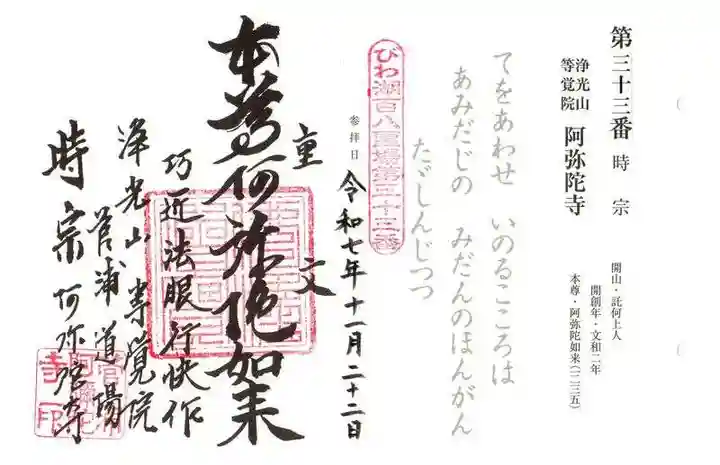 第三十三番 時宗
浄光山
等覚院 阿弥陀寺
開山・託何上人
開創年・文和二年
本尊・阿弥陀如来(一二三五)
てをあわせ いのるこころは
あみだじの みだんのほんがん
ただしんじつつ
びわ湖百八霊場第三十三番
参拝日 令和七年十一月二十二日
重文
本尊阿弥陀如来
巧匠法眼行快作
浄光山等覚院
菅浦道場
時宗阿弥陀寺